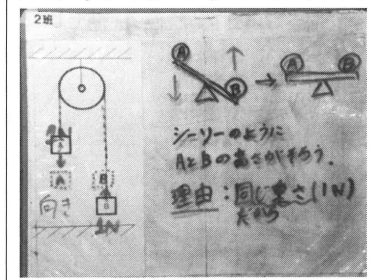 2班
A
B
向き
1N
A
B
A
B
シーソーのように
AとBの高さがそろう.
理由:同じ重さ(1N)
だから